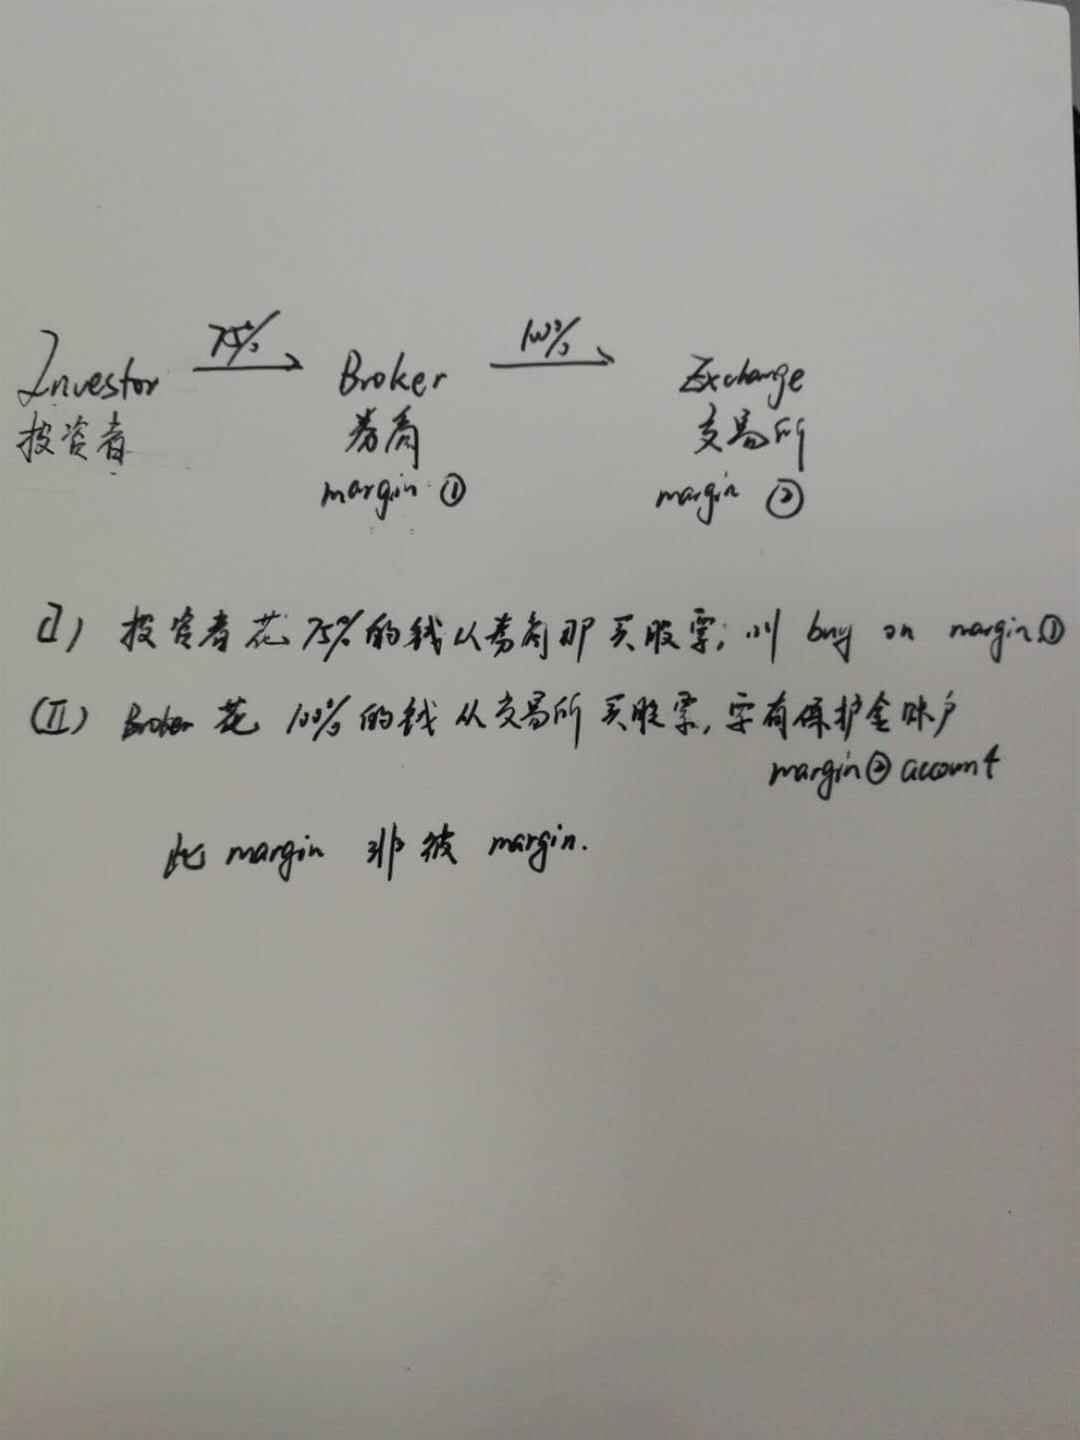 Investor 75% Broker 100% Exchange
投资者 券商 交易所
margin ① margin ②
(I) 投资者花75%的钱从券商那买股票, 叫 buy on margin①
(II) Broker 花 100%的钱从交易所买股票, 要有保护金账户
margin② account
此 margin 非彼 margin.